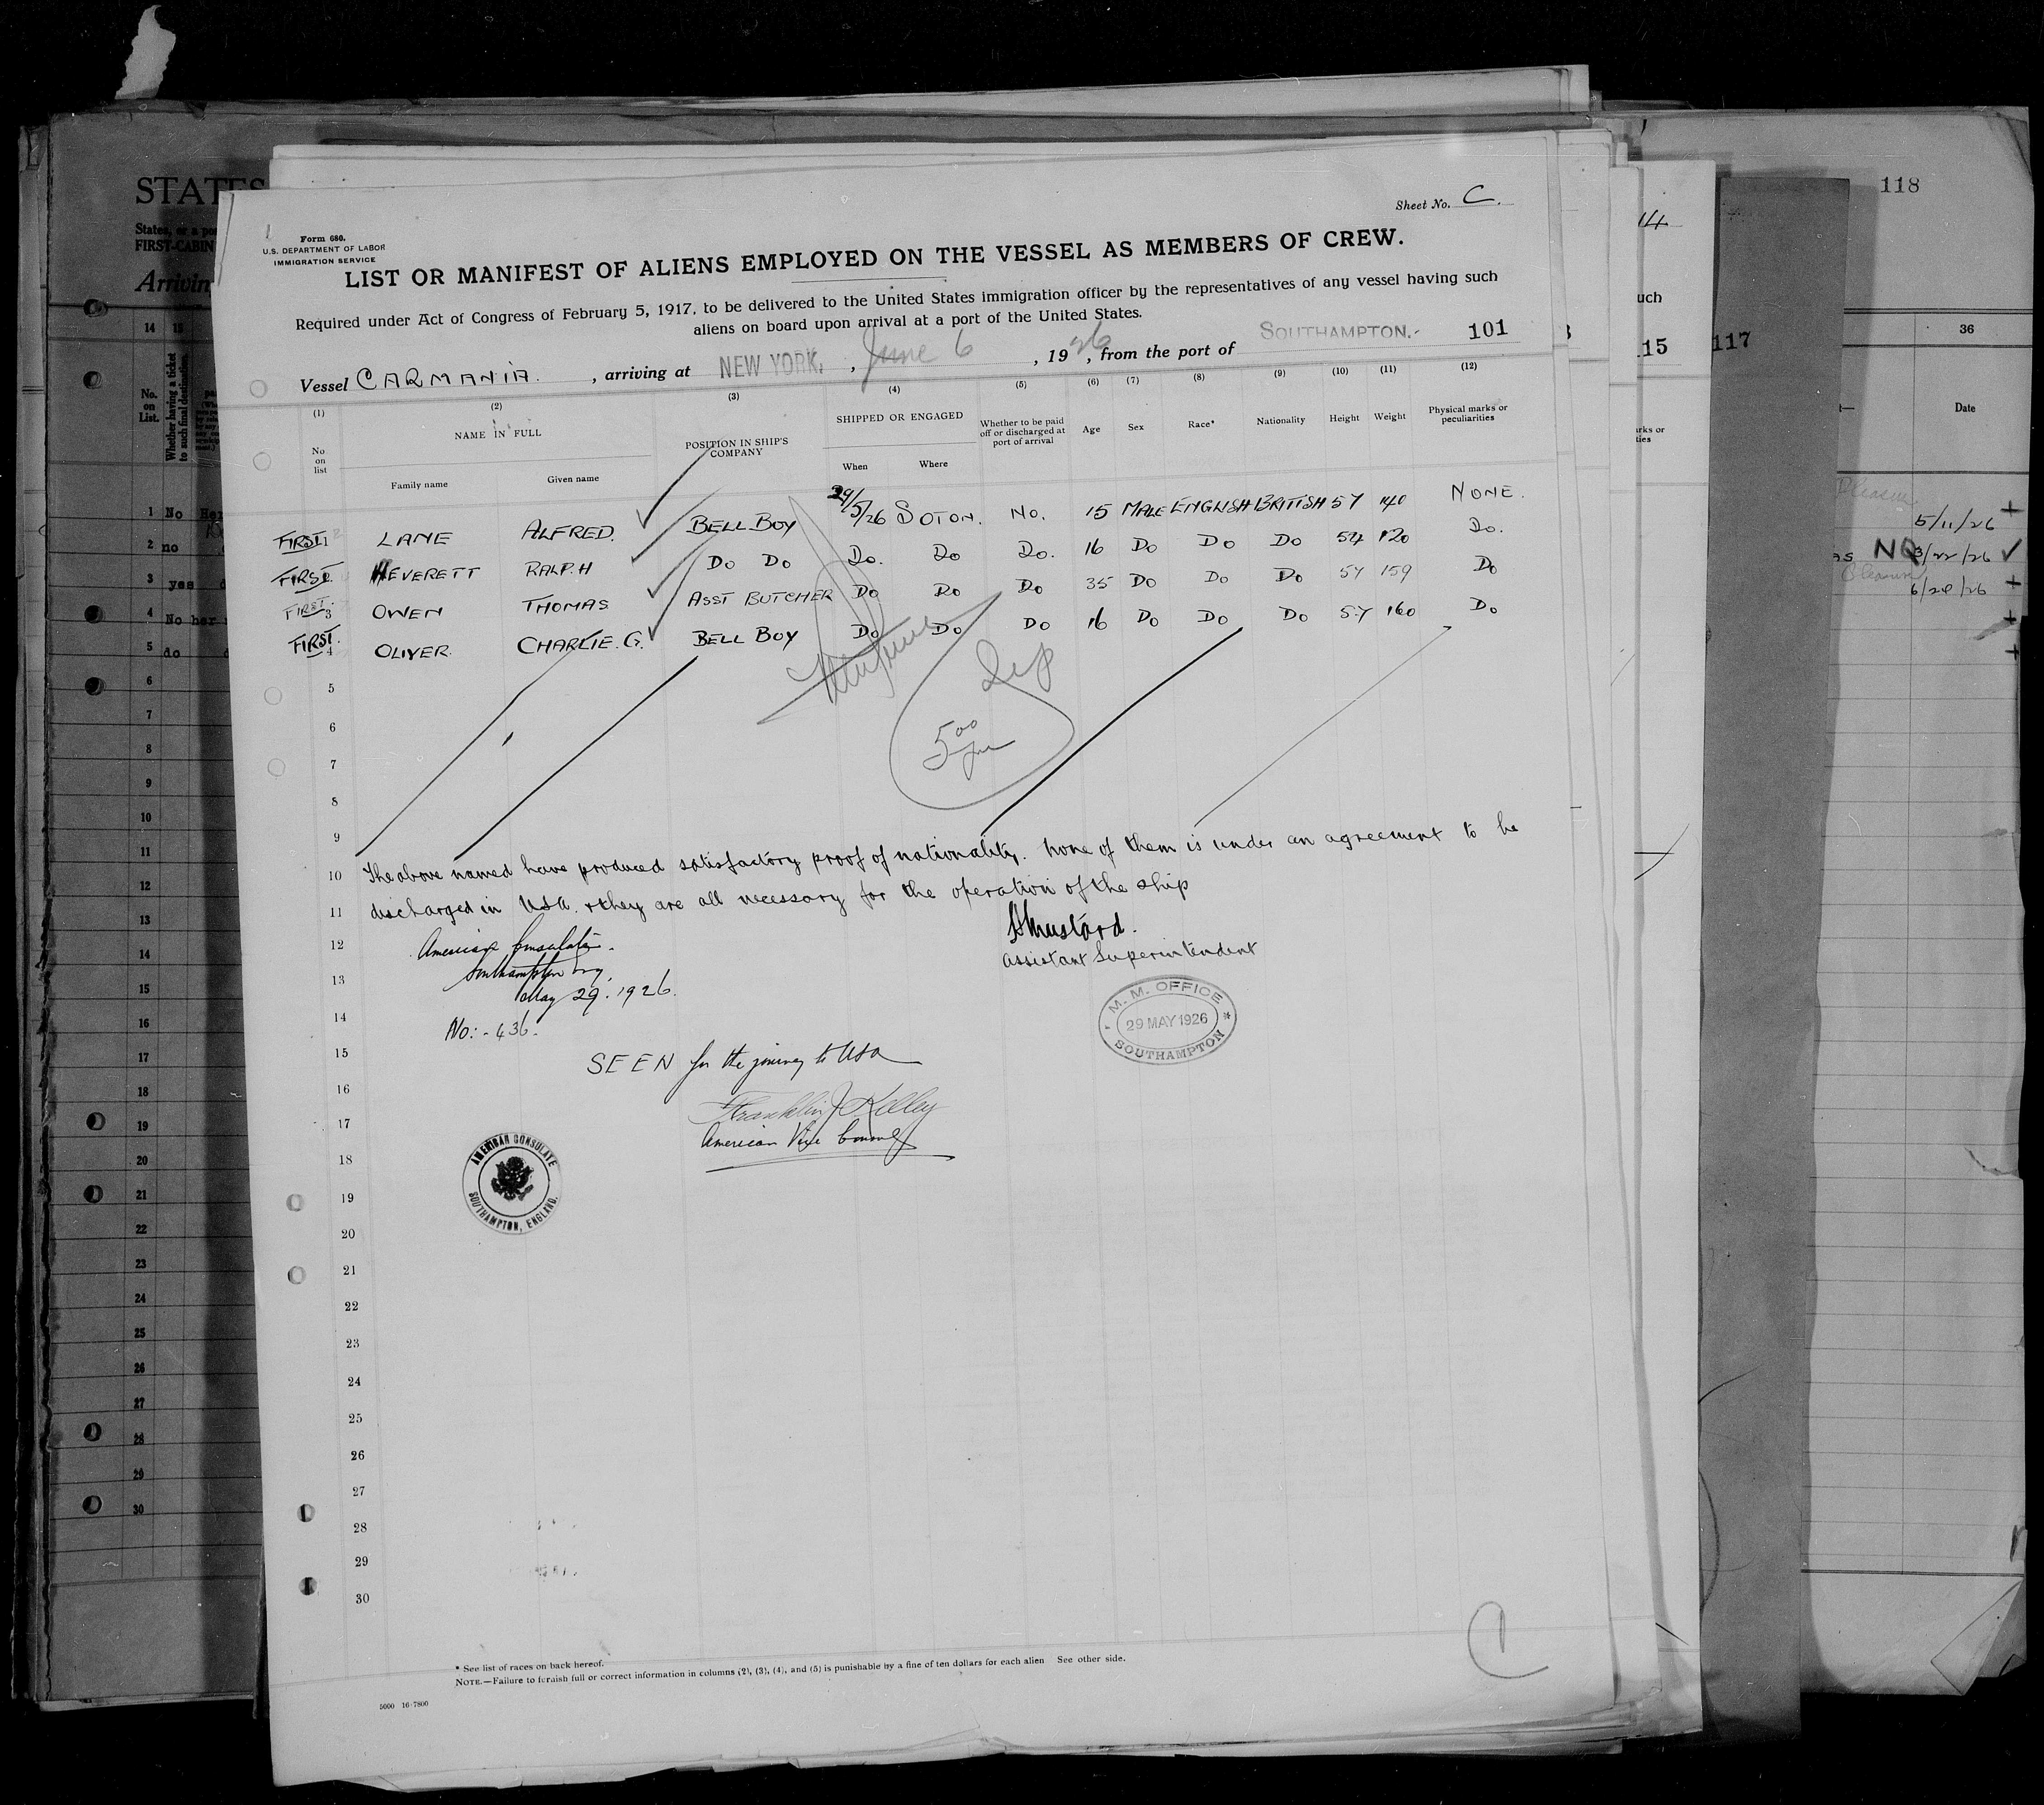 STATES
118
14
Sheet No. C.
Form 680.
U.S. DEPARTMENT OF LABOR
IMMIGRATION SERVICE
LIST OR MANIFEST OF ALIENS EMPLOYED ON THE VESSEL AS MEMBERS OF CREW.
Required under Act of Congress of February 5, 1917, to be delivered to the United States immigration officer by the representatives of any vessel having such
aliens on board upon arrival at a port of the United States.
101
115
117
Vessel CARMANIA. , arriving at NEW YORK. , June 6 , 1926 , from the port of SOUTHAMPTON.-
(1) (2) (3) (4) (5) (6) (7) (8) (9) (10) (11) (12)
No on list NAME IN FULL POSITION IN SHIP'S COMPANY SHIPPED OR ENGAGED Whether to be paid off or discharged at port of arrival Age Sex Race* Nationality Height Weight Physical marks or peculiarities
Family name Given name When Where
FIRST 1 LANE ALFRED. BELL BOY 29/5/26 SOTON. NO. 15 MALE ENGLISH BRITISH 57 140 NONE.
FIRST 2 EVERETT RALPH DO DO DO. DO DO. 16 DO DO DO 54 120 DO.
FIRST 3 OWEN THOMAS ASST BUTCHER DO DO DO 35 DO DO DO 57 159 DO
FIRST 4 OLIVER. CHARLIE. G. BELL BOY DO DO DO 16 DO DO DO 57 160 DO
5
6
7
8
9
10 The above named have produced satisfactory proof of nationality. None of them is under an agreement to be
11 discharged in USA. & they are all necessary for the operation of the ship
Mustard.
Assistant Superintendent
12 American Consulate.
13 Southampton Eng.
May 29. 1926.
14 No:- 436-
M. M. OFFICE
29 MAY 1926
SOUTHAMPTON
15 SEEN for the journey to USA
16 Franklin J Kelley
17 American Vice Consul
AMERICAN CONSULATE
SOUTHAMPTON, ENGLAND.
18
19
20
21
22
23
24
25
26
27
28
29
30
* See list of races on back hereof.
NOTE.—Failure to furnish full or correct information in columns (2), (3), (4), and (5) is punishable by a fine of ten dollars for each alien See other side.
5000 16-7800
C
36
Date
5/11/26
NQ 3/22/26